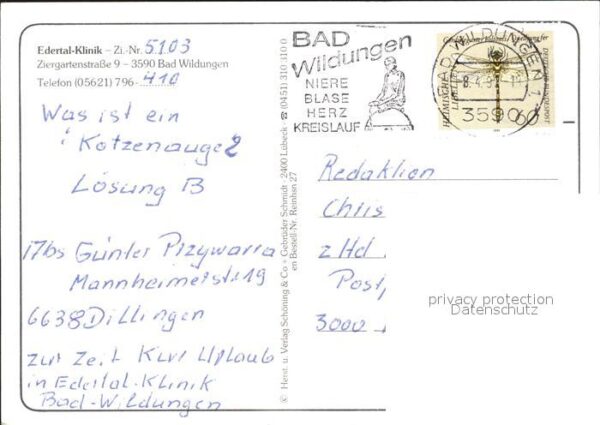 Edertal-Klinik – Zi.-Nr. 5103
Ziergartenstraße 9 – 3590 Bad Wildungen
Telefon (05621) 796-410
Was ist ein
Katzenauge?
Lösung B
Günter Przywarra
Mannheimerstr 19
6638 Dillingen
zur Zeit Kur Urlaub
in Edertal-Klinik
Bad-Wildungen
© Herst. u. Verlag Schöning & Co + Gebrüder Schmidt · 2400 Lübeck · ☎ (0451) 310 310 0
Bestell-Nr. Reinhsn 27
BAD
Wildungen
NIERE
BLASE
HERZ
KREISLAUF
BAD WILDUNGEN 1
3590
60
Redaktion
Chris
z Hd
Post,
3000
privacy protection
Datenschutz